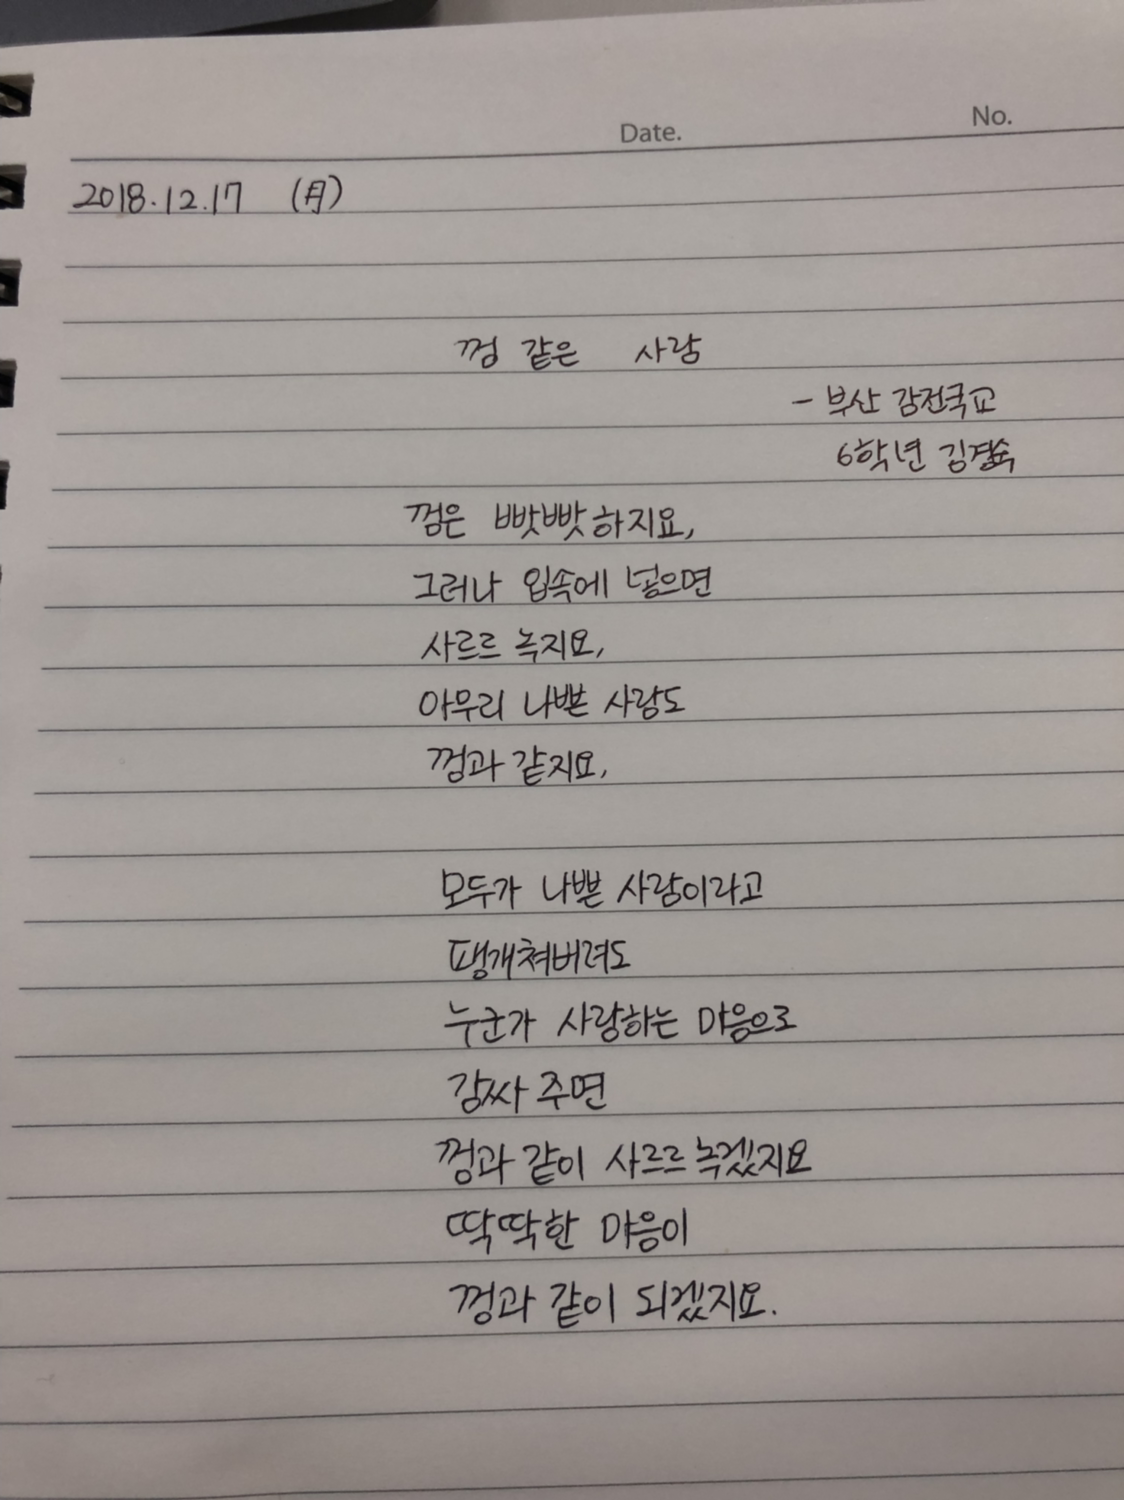 Date.
No.
2018.12.17 (月)
껌 같은 사랑
- 부산 감전국교
6학년 김경숙
껌은 빳빳하지요,
그러나 입속에 넣으면
사르르 녹지요,
아무리 나쁜 사람도
껌과 같지요,
모두가 나쁜 사람이라고
팽개쳐버려도
누군가 사랑하는 마음으로
감싸 주면
껌과 같이 사르르 녹겠지요
딱딱한 마음이
껌과 같이 되겠지요.